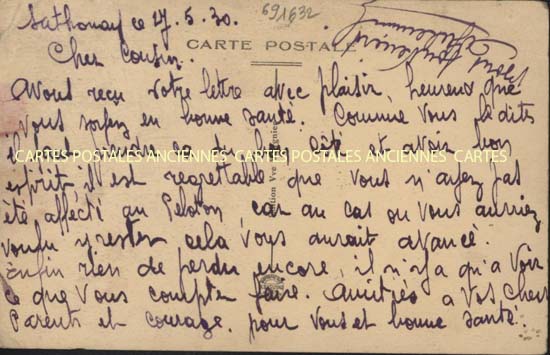 Sathonay ce 27.5.30.
691632
CARTE POSTALE
Cher Cousin.
Avons reçu votre lettre avec plaisir, heureux que
vous soyez en bonne santé. Comme vous le dites
il prendre ça du bon côté et avoir bon
CARTES POSTALES ANCIENNES CARTES POSTALES ANCIENNES CARTES
esprit, il est regrettable que vous n'ayez pas
été affecté au Peloton, car au cas ou vous auriez
voulu y rester cela vous aurait avancé.
Enfin rien de perdu encore, il n'y a qu'a voir
ce que vous compter faire. Amitiés a vos chers
Parents et courage, pour vous et bonne santé.
Bons souvenirs